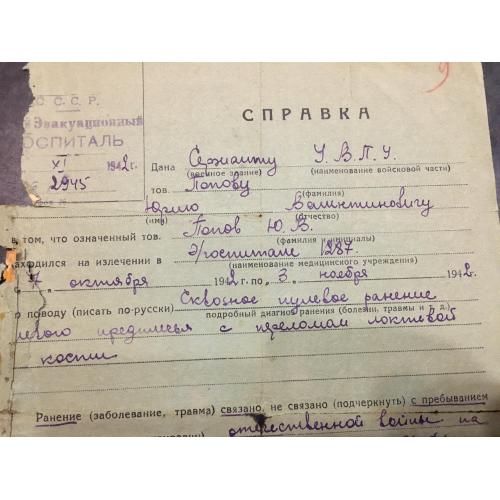 С. С. С. Р.
Эвакуационный
ОСПИТАЛЬ
XI 1942 г.
2945
9
СПРАВКА
Дана Сержанту У.В.П.У.
(военное звание) (наименование войсковой части)
тов. Попову
(фамилия)
Юрию Валентиновичу
(имя) (отчество)
в том, что означенный тов. Попов Ю. В.
(фамилия и инициалы)
находился на излечении в Э/госпитале 1287
(наименование медицинского учреждения)
7 октября 1942 г. по 3 ноября 1942.
о поводу (писать по-русски) Сквозное пулевое ранение
подробный диагноз ранения (болезни, травмы и т. д.)
левого предплечья с переломом локтевой
кости
Ранение (заболевание, травма) связано, не связано (подчеркнуть) с пребыванием
отечественной войны на